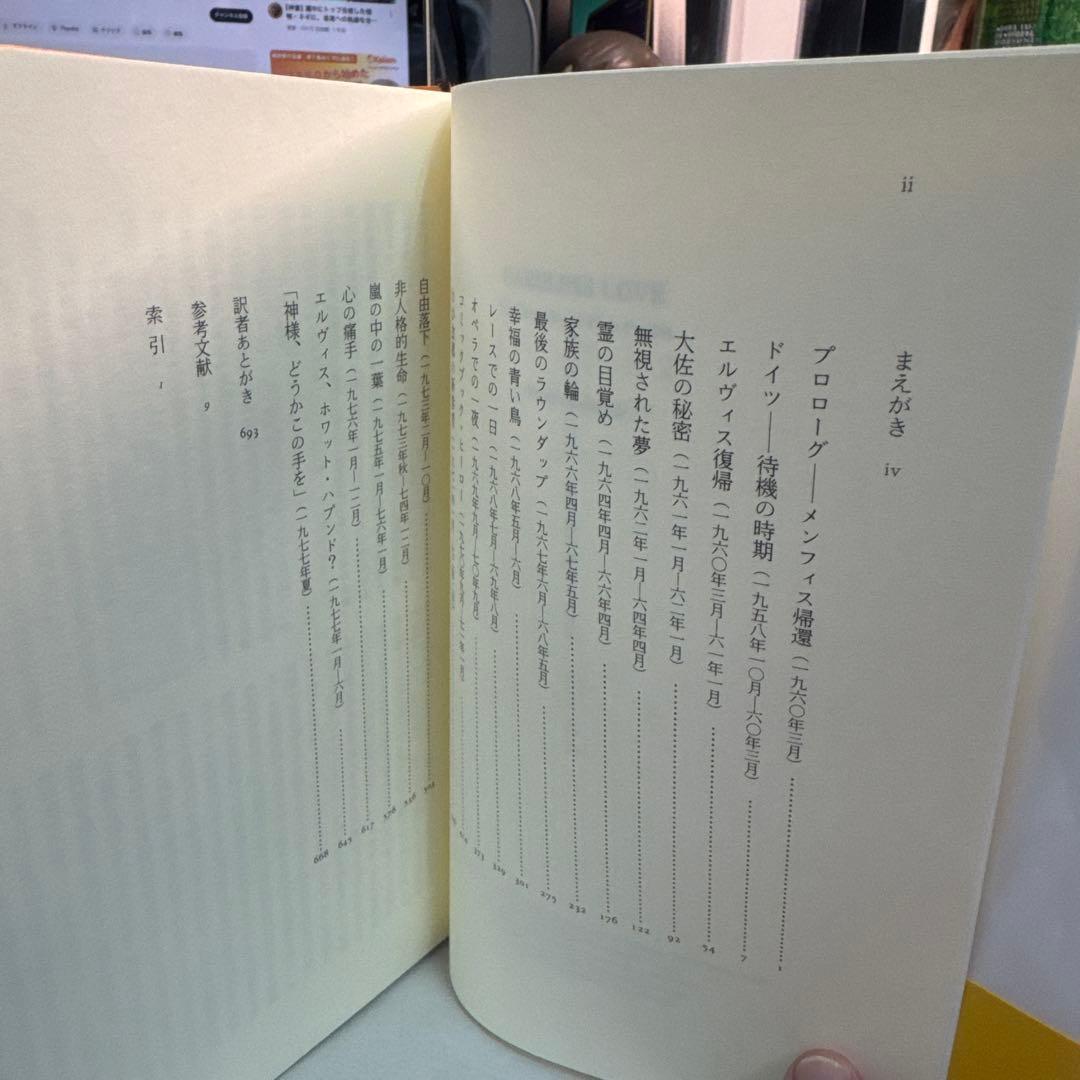 ii
まえがき iv
プロローグ——メンフィス帰還（一九六〇年三月） 1
ドイツ——待機の時期（一九五八年一〇月—六〇年三月） 7
エルヴィス復帰（一九六〇年三月—六一年一月） 54
大佐の秘密（一九六一年一月—六二年一月） 92
無視された夢（一九六二年一月—六四年四月） 122
霊の目覚め（一九六四年四月—六六年四月） 176
家族の輪（一九六六年四月—六七年五月） 232
最後のラウンダップ（一九六七年六月—六八年五月） 275
幸福の青い鳥（一九六八年五月—六月） 301
レースでの一日（一九六八年七月—六九年八月） 329
オペラでの一夜（一九六九年九月—七〇年九月） 373
コミックブック・ヒーロー
自由落下（一九七三年二月—一〇月）
非人格的生命（一九七三年秋—七四年一二月） 536
嵐の中の一葉（一九七五年一月—七六年一月） 576
心の痛手（一九七六年一月—一二月） 617
エルヴィス、ホワット・ハプンド？（一九七七年一月—六月） 645
「神様、どうかこの手を」（一九七七年夏） 668
訳者あとがき 693
参考文献 9
索引 1